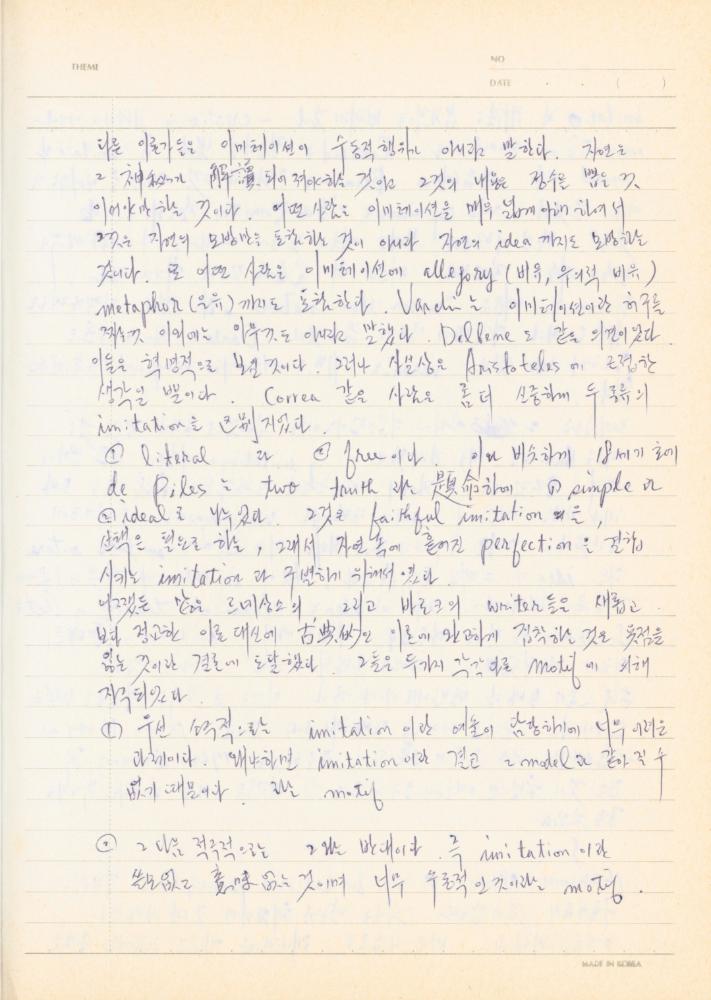 THEME
NO
DATE . . ( )
다른 이론가들은 이미테이션이 수동적 행위가 아니라고 말한다. 자연은
그 神秘가 解讀되어져야 하는 것이고 그것의 내용은 정수를 뽑은 것
이어야만 하는 것이다. 어떤 사람은 이미테이션을 매우 넓게 이해하여서
그것은 자연의 모방만을 포함하는 것이 아니라 자연의 idea 까지도 모방하는
것이다. 또 어떤 사람은 이미테이션에 allegory (비유, 우의적 비유)
metaphor (은유) 까지도 포함한다. Varchi는 이미테이션이란 허구를
짜는것 이외에는 아무것도 아니라고 말했다. Delbene도 같은 의견이었다.
이들은 혁명적으로 보인 것이다. 그러나 사실상은 Aristoteles에 근접한
생각일 뿐이다. Correa 같은 사람은 좀 더 신중하게 두 종류의
imitation을 区別 지었다.
① literal 과 ② free 이다. 이와 비슷하게 18세기 초에
de Piles는 two truth 라고 命하여 ① simple 과
② ideal로 나누었다. 그것은 faithful imitation 을,
선택을 필요로 하는, 그래서 자연 속에 흩어진 perfection을 결합
시키는 imitation 과 구별하기 위해서였다.
어쨌든 많은 르네상스의 그리고 바로크의 writer들은 새롭고
보다 정교한 이론 대신에 古典的인 이론에 완고하게 집착하는 것은 옳지
않는 것이란 결론에 도달했다. 그들은 두가지 각각 다른 motif에 의해
자극되었다.
① 우선 소극적으로는 imitation 이란 예술이 감당하기에 너무 어려운
과제이다. 왜냐하면 imitation이란 결코 그 model과 같아질 수
없기 때문이다. 라는 motif
② 그 다음 적극적으로는 그와는 반대이다. 즉 imitation 이란
쓸모없고 意味 없는 것이며 너무 수동적인 것이라는 motif.
MADE IN KOREA